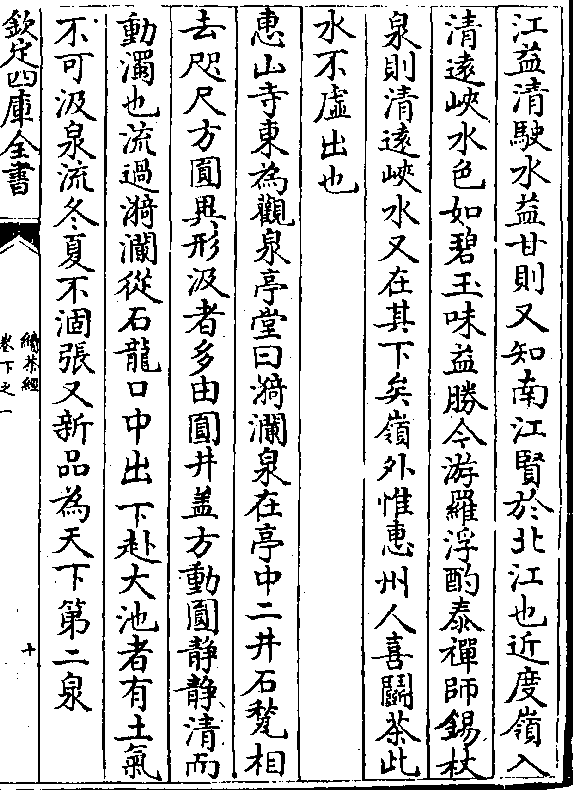 江益清駛水益甘則又知南江賢於北江也近度嶺入
清遠峽水色如碧玉味益勝今游羅浮酌泰禪師錫杖
泉則清遠峽水又在其下矣嶺外惟惠州人喜鬭茶此
水不虛出也
惠山寺東為觀泉亭堂曰漪瀾泉在亭中二井石甃相
去咫尺方圓異形汲者多由圓井盖方動圓静静清而
動濁也流過漪瀾從石龍口中出下赴大池者有土氣
不可汲泉流冬夏不涸張又新品為天下第二泉
欽定四庫全書
續茶經
卷下之一
十